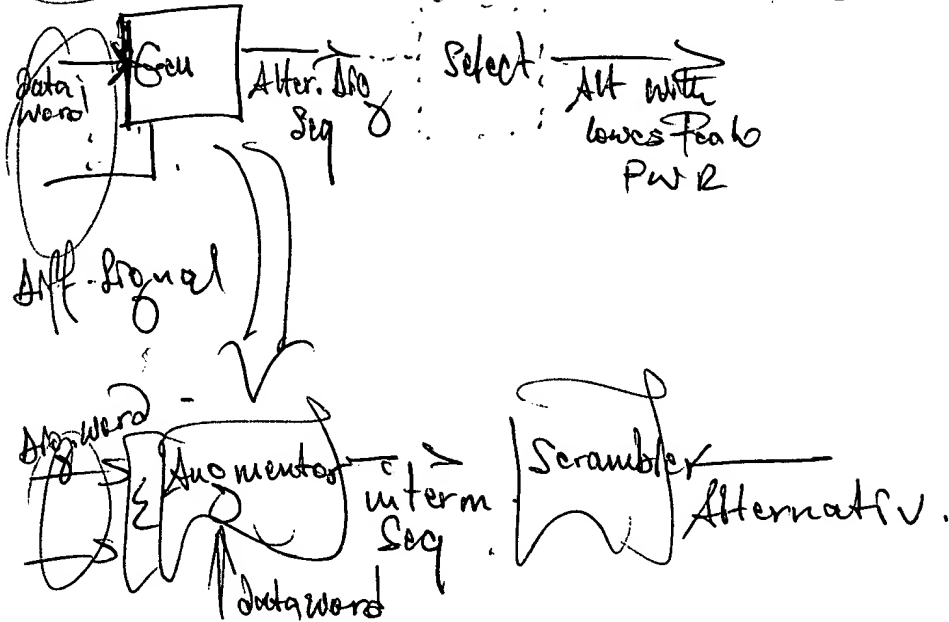 data
word
Gen
Alter. Dig
Seq
Select
Alt with
lowes Peak
PWR
Diff. Signal
Dig. word
Augmentor
interm
Seq
Scrambler
Alternativ.
dataword